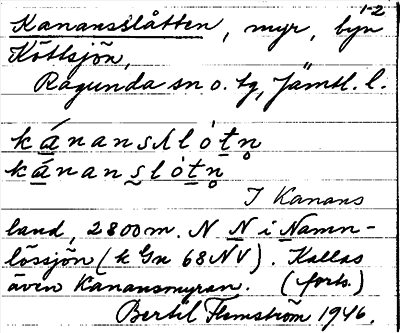 1-2
Kanansslåtten, myr, byn
Köttsjön,
Ragunda sn o. tg, Jämtl. l.
kánansʎlót̠n̥
ká̠nans̠lót̠n̥
I Kanans
land, 2800 m. N N i Namn-
lössjön (k Gn 68 NV). Kallas
även Kanansmyran. (forts.)
Bertil Flemström 1946.